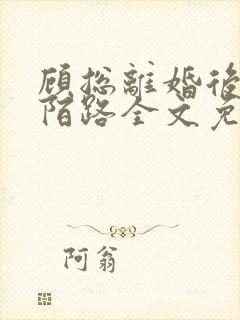 顾总離婚後
陌路全文免
阿翁